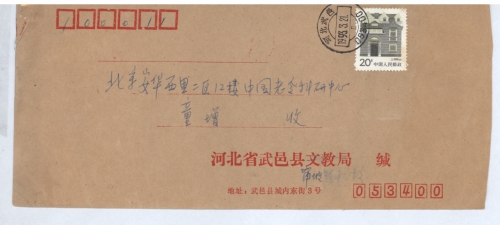 100011
河北武邑
1995.3.21
20分 中国人民邮政
北京安华西里二区12楼中国老龄科研中心
童增 收
河北省武邑县文教局 缄
地址：武邑县城内东街3号
053400